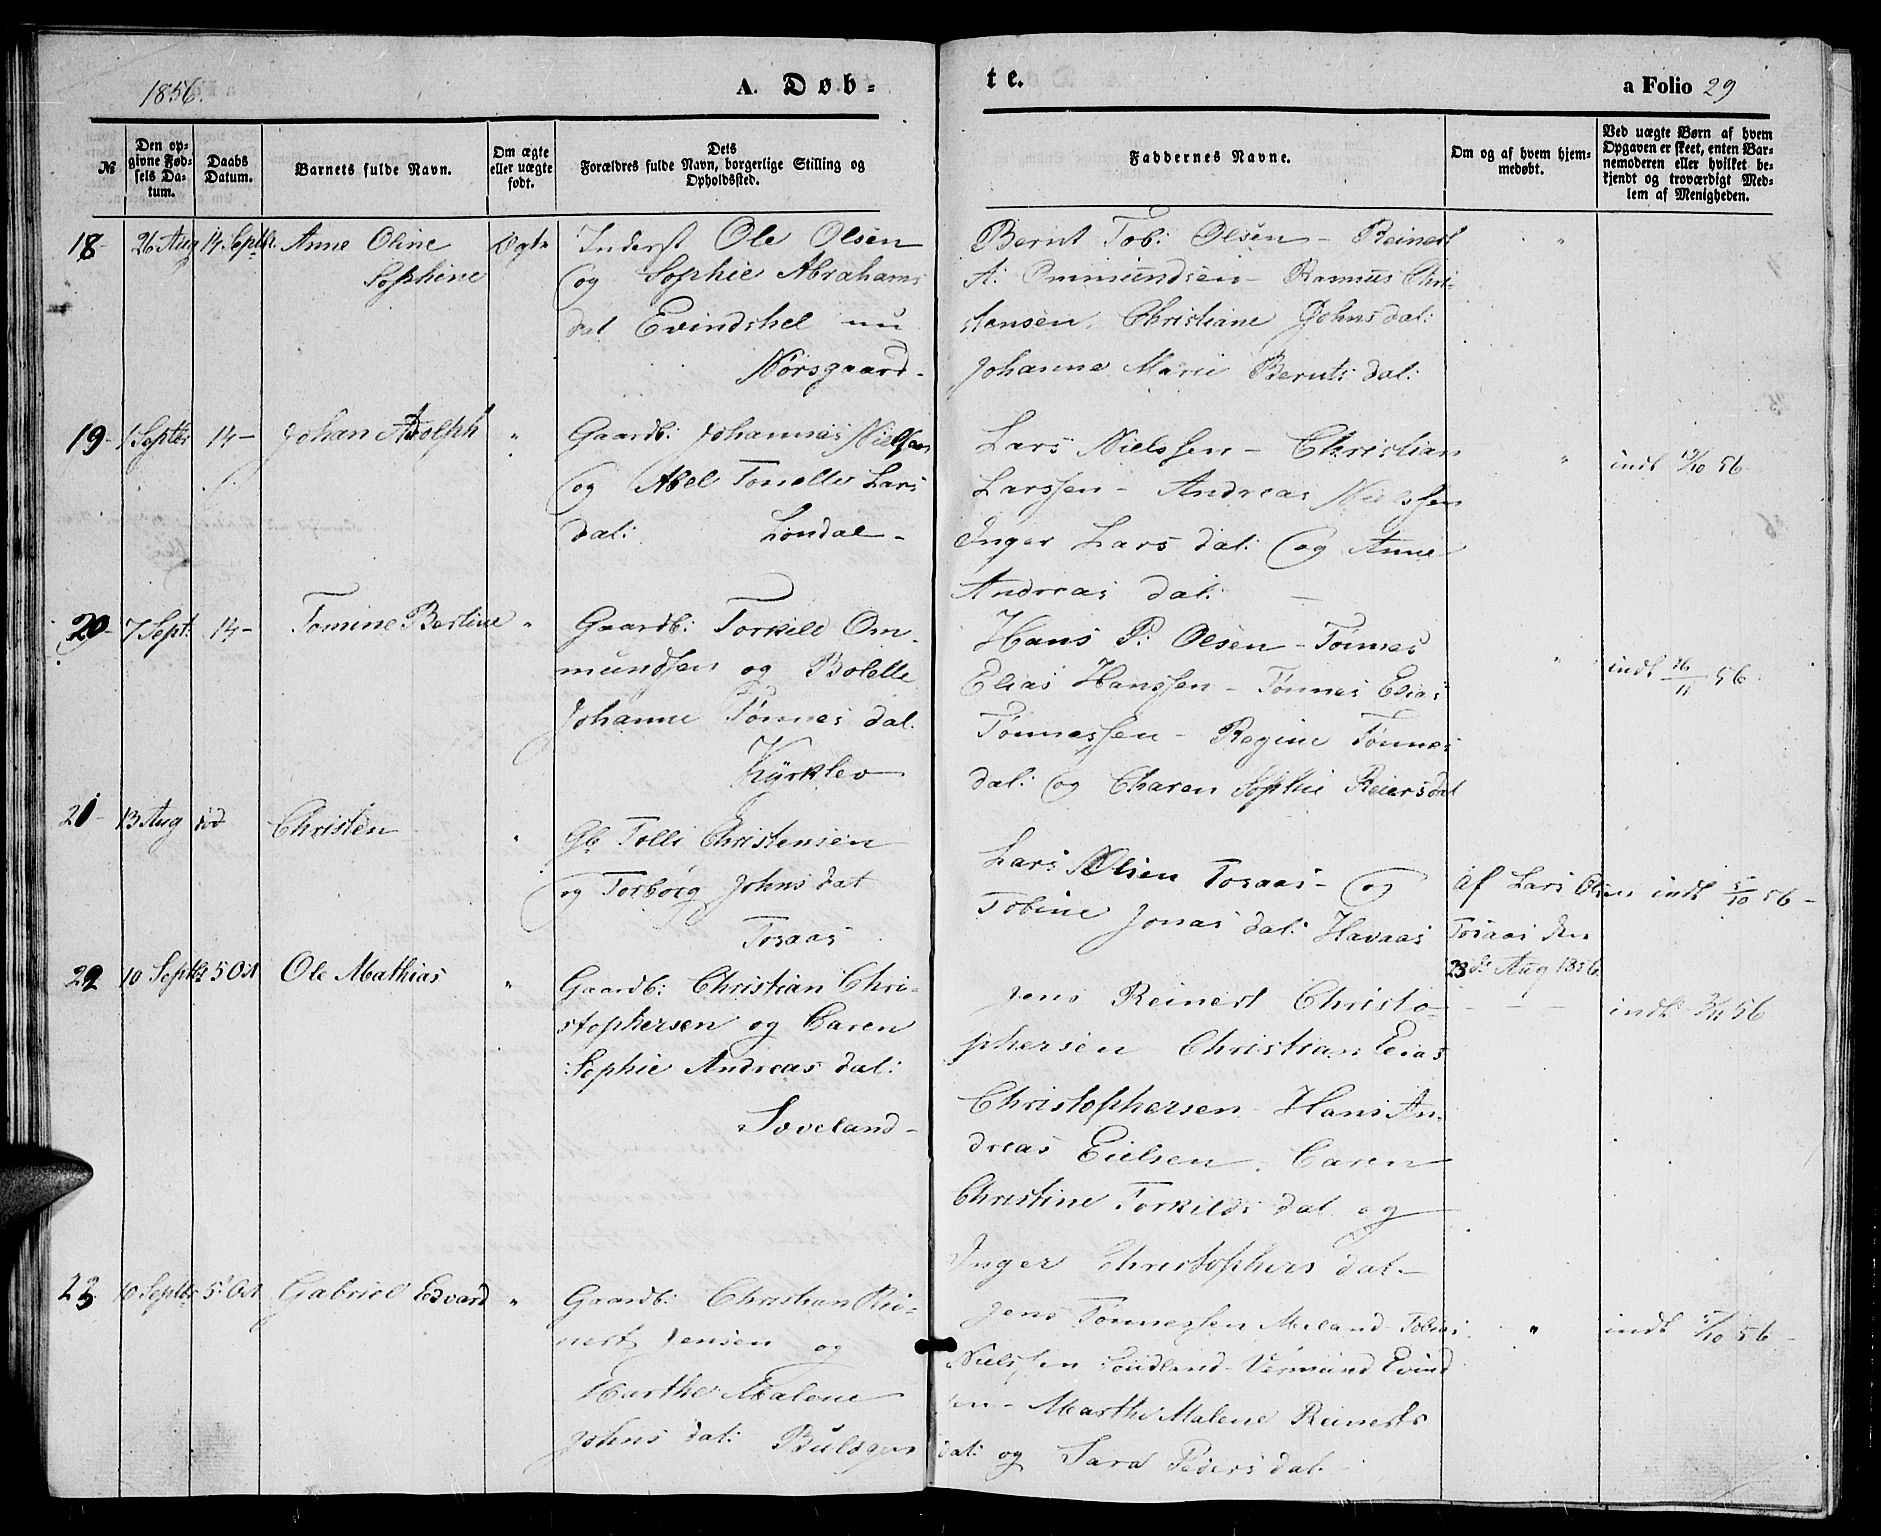 1856.
A. Døb-
te.
a Folio 29
№
Den op-
givne Fød-
sels Da-
tum.
Daabs
Datum.
Barnets fulde Navn.
Om ægte
eller uægte
født.
Dets
Forældres fulde Navn, borgerlige Stilling og
Opholdssted.
Faddernes Navne.
Om og af hvem hjem-
medøbt.
Ved uægte Børn af hvem
Opgaven er skeet, enten Bar-
nemoderen eller hvilket be-
kjendt og troværdigt Med-
lem af Menigheden.
18- 26 Aug 14 Septbr. Anne Oline
Sophine
Ægte
Inderst Ole Olsen
og Sophie Abrahams
dat Evindshel nu
Nörsgaard-
Bernt Tob: Olsen - Reinert
A: Ommundsen - Rasmus Chri-
stensen, Christiane Johns dat:
Johanne Marie Bernts dat:
"
19- 1 Septbr 14- Johan Adolph "
Gaardb: Johannes Nielsen
og Abel Tonette Lars
dat: Londal-
Lars Nielssen - Christian
Larssen - Andreas Nielssen
Inger Lars dat: og Anne
Andreas dat: -
"
indt 12/10 56
20- 7 Sept. 14- Tomine Bertine "
Gaardb: Torkild Om-
mundsen og Bolette
Johanne Tönnes dat.
Kyrklev
Hans P: Olsen - Tönnes
Elias Hanssen - Tönnes Elias
Tönnessen - Regine Tönnes
dat: og Charen Sophie Reiersdat
"
indt 16/11 56.
21- 13 Aug död Christen "
Gb Tolli Christensen
og Torborg Johns dat
Tosaas
Lars Olsen Tosaas- og
Tobine Jonas dat: Havaas
Af Lars Olsen
Tosaas den
23de Aug 1856.
indt 5/10 56-
22 10 Septbr 5 Oct Ole Mathias "
Gaardb: Christian Chri-
stophersen og Caren
Sophie Andreas dat:
Loveland-
Jens Reinert Christo-
phersen Christian Elias
Christophersen - Hans An-
dreas Eielsen, Caren
Christine Torkilds dat og
Inger Christophers dat-
indt 2/11 56
23 10 Septbr 5 Oct Gabriel Edvard "
Gaardb: Christian Rei-
nert Jensen og
Marthe Malene
Johns dat: Buldgen
Jens Tönnessen Meland- Tobias
Nielssen Loudland- Vermund Evind
sen- Marthe Malene Reinerts
dat: og Sara Peders dat-
"
indt 5/10 56-